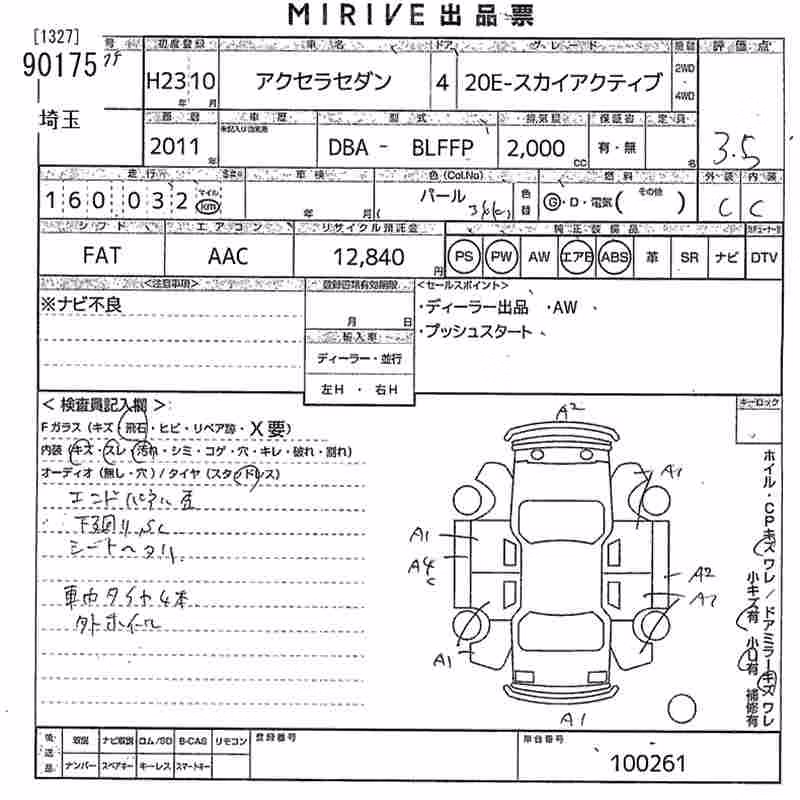 MIRIVE 出品票
[1327]
90175
埼玉
初度登録 車名 ドア グレード 評価点
H23 10 アクセラセダン 4 20E-スカイアクティブ 2WD・4WD
年 月
車歴 型式 排気量 保証書 定員
2011年 DBA - BLFFP 2,000 CC 有・無 名
3.5
走行 車検 色(Col.No) 燃料 外装 内装
160,032 マイル km 年 月 パール 色替 G・D・電気( その他 ) C C
シフト エアコン リサイクル預託金 純正装備品
FAT AAC 12,840円 PS PW AW エアB ABS 革 SR ナビ DTV
<注意事項>
※ナビ不良
登録書類有効期限
月 日
輸入車
ディーラー・並行
左H ・ 右H
<セールスポイント>
・ディーラー出品 ・AW
・プッシュスタート
<検査員記入欄>
Fガラス(キズ・飛石・ヒビ・リペア跡・X要)
内装(キズ・スレ・汚れ・シミ・コゲ・穴・キレ・破れ・割れ)
オーディオ(無し・穴)/タイヤ(スタッドレス)
下回りSC
シートヘタリ
車内タイヤ4本
外ホイール
キーロック
A2
A1
A1
A4
C
A2
A2
A1
A1
ホイル・CPキズワレ/ドアミラーキズワレ
小キズ有 小U有 補修有
後送品 取説 ナビ取説 ロム/SD B-CAS リモコン
ナンバー スペアキー キーレス スマートキー
登録番号
車台番号
100261